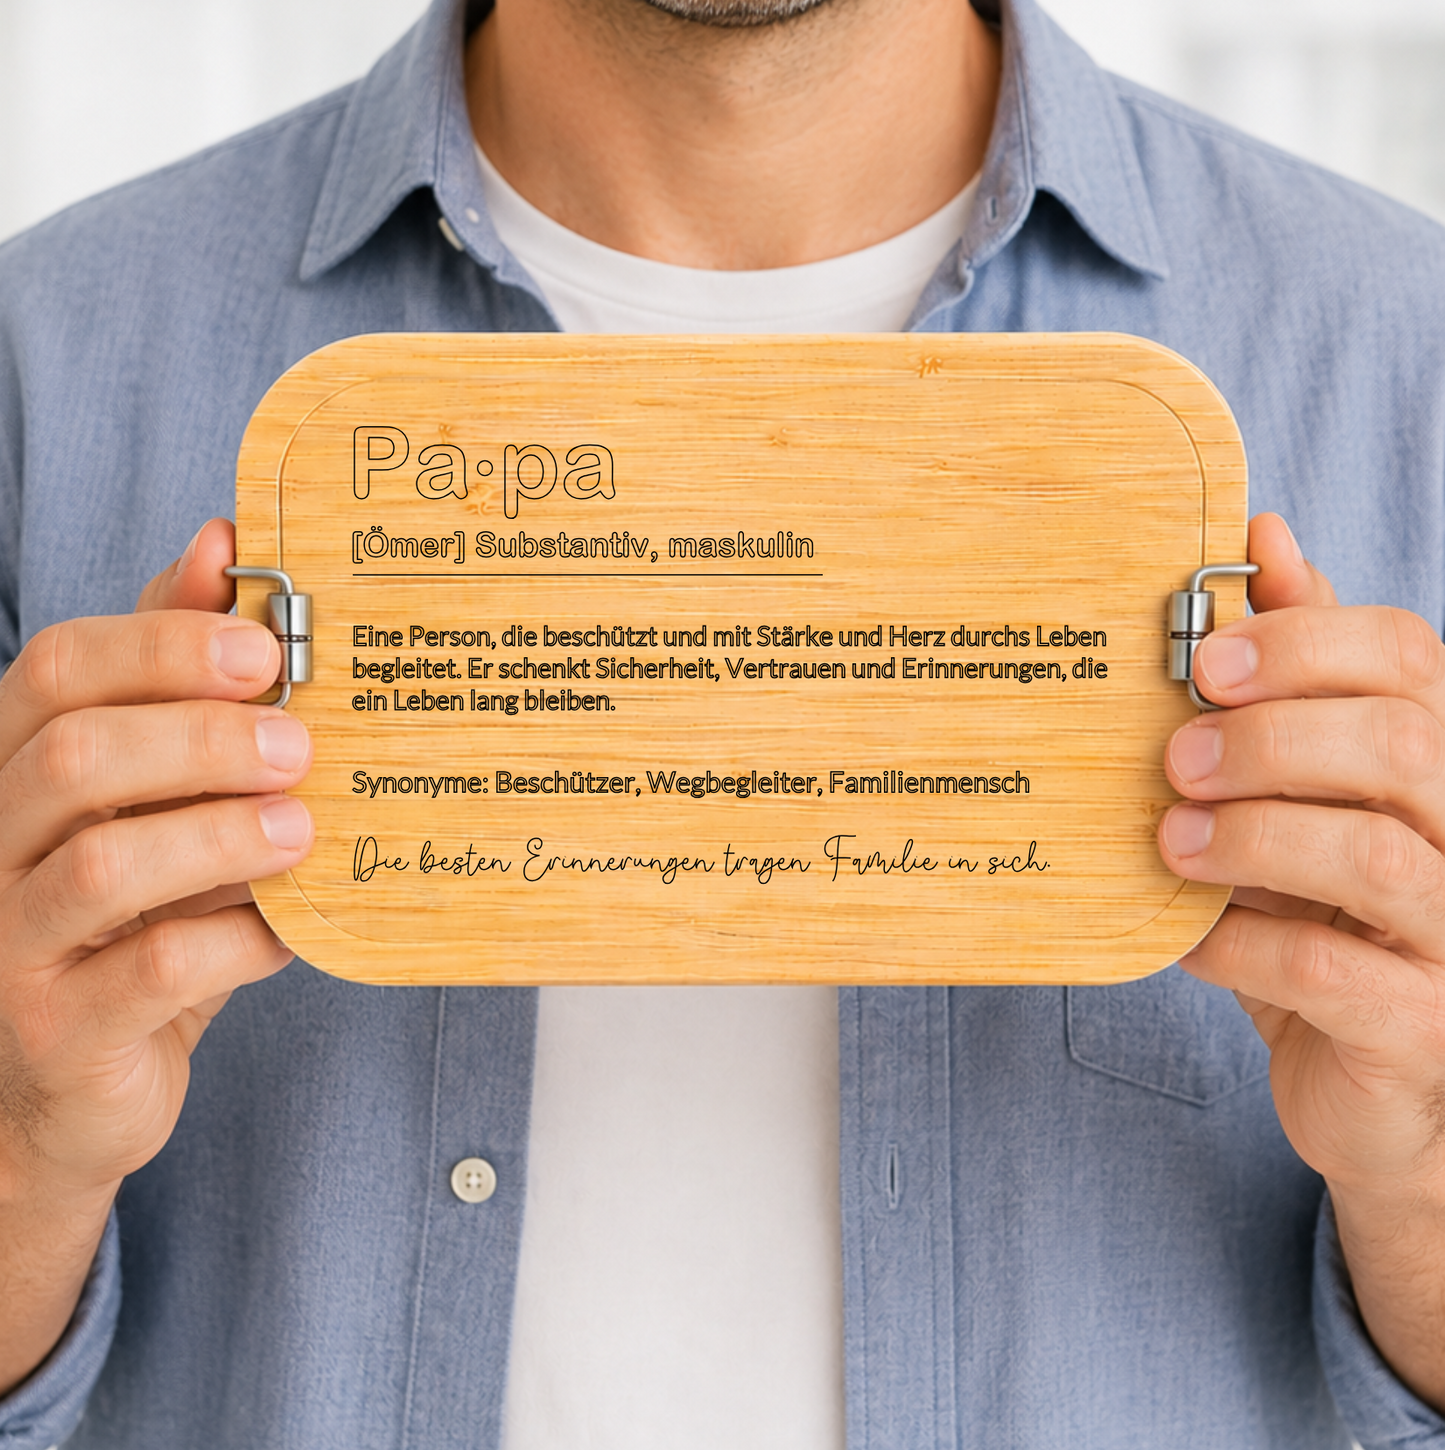 Pa·pa
[Ömer] Substantiv, maskulin
Eine Person, die beschützt und mit Stärke und Herz durchs Leben
begleitet. Er schenkt Sicherheit, Vertrauen und Erinnerungen, die
ein Leben lang bleiben.
Synonyme: Beschützer, Wegbegleiter, Familienmensch
Die besten Erinnerungen tragen Familie in sich.